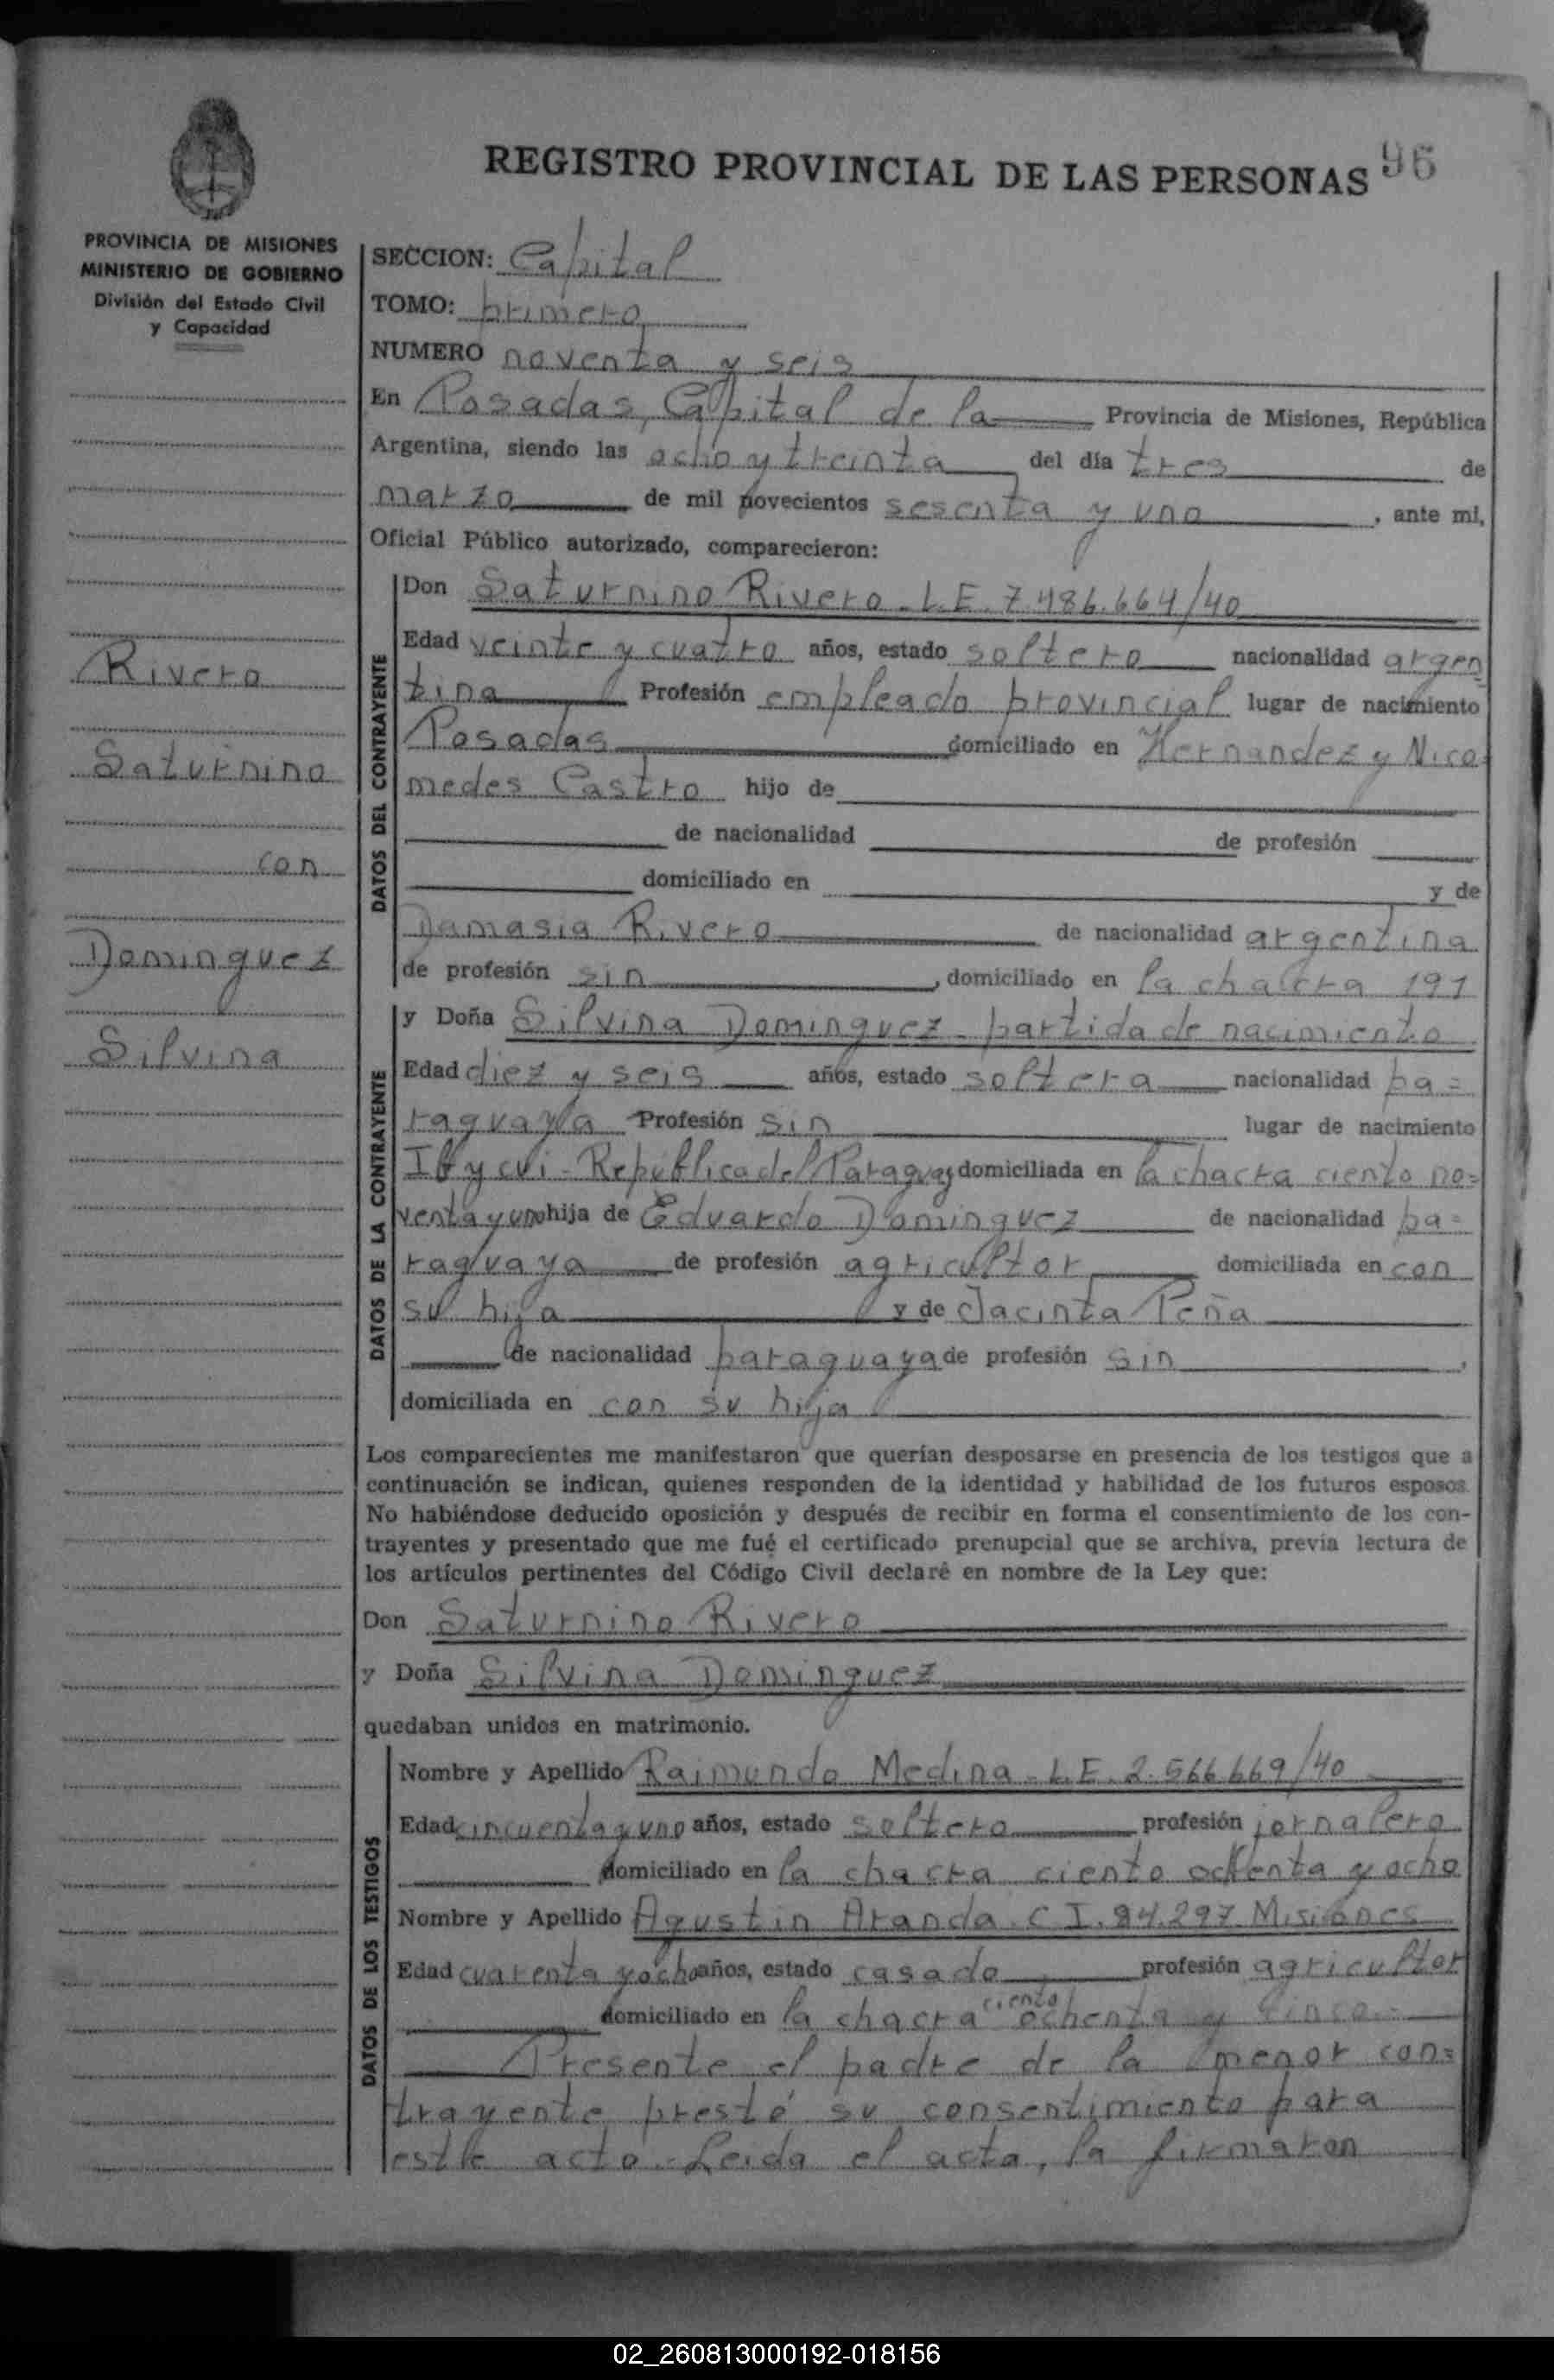 REGISTRO PROVINCIAL DE LAS PERSONAS 96
PROVINCIA DE MISIONES
MINISTERIO DE GOBIERNO
División del Estado Civil
y Capacidad
SECCION: Capital
TOMO: primero
NUMERO noventa y seis
En Posadas, Capital de la Provincia de Misiones, República
Argentina, siendo las ocho y treinta del día tres de
marzo de mil novecientos sesenta y uno, ante mi,
Oficial Público autorizado, comparecieron:
Rivero
Saturnino
con
Dominguez
Silvina
DATOS DEL CONTRAYENTE
Don Saturnino Rivero - L.E. 7.486.664/40
Edad veinte y cuatro años, estado soltero nacionalidad argen
tina Profesión empleado provincial lugar de nacimiento
Posadas domiciliado en Hernandez y Nico=
medes Castro hijo de
de nacionalidad de profesión
domiciliado en y de
Damasia Rivero de nacionalidad argentina
de profesión sin, domiciliado en la chacra 191
DATOS DE LA CONTRAYENTE
y Doña Silvina Dominguez - partida de nacimiento
Edad diez y seis años, estado soltera nacionalidad pa=
raguaya Profesión sin lugar de nacimiento
Ibycui - República del Paraguay domiciliada en la chacra ciento no=
venta y uno hija de Eduardo Dominguez de nacionalidad pa=
raguaya de profesión agricultor domiciliada en con
su hija y de Jacinta Peña
de nacionalidad paraguaya de profesión sin,
domiciliada en con su hija
Los comparecientes me manifestaron que querían desposarse en presencia de los testigos que a
continuación se indican, quienes responden de la identidad y habilidad de los futuros esposos.
No habiéndose deducido oposición y después de recibir en forma el consentimiento de los con-
trayentes y presentado que me fué el certificado prenupcial que se archiva, previa lectura de
los artículos pertinentes del Código Civil declaré en nombre de la Ley que:
Don Saturnino Rivero
y Doña Silvina Dominguez
quedaban unidos en matrimonio.
DATOS DE LOS TESTIGOS
Nombre y Apellido Raimundo Medina - L.E. 2.566.669/40
Edad cincuenta y uno años, estado soltero profesión jornalero
domiciliado en la chacra ciento ochenta y ocho
Nombre y Apellido Agustin Aranda. C I. 84.297 Misiones
Edad cuarenta y ocho años, estado casado profesión agricultor
domiciliado en la chacra ciento ochenta y cinco.-
Presente el padre de la menor con=
trayente prestó su consentimiento para
este acto.- Leida el acta, la firmaron
02_260813000192-018156